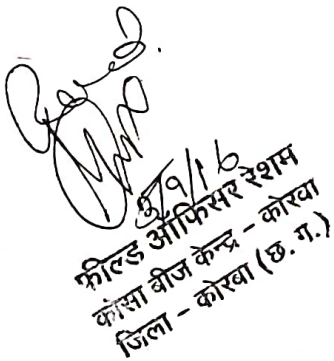 9/16
फील्ड ऑफिसर रेशम
कोसा बीज केन्द्र - कोरबा
जिला - कोरबा (छ. ग.)